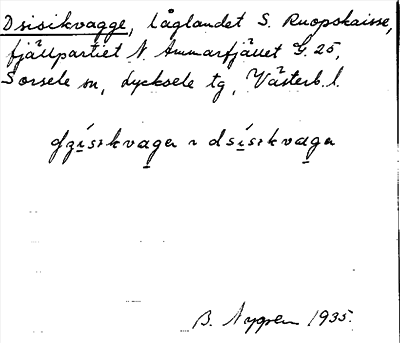 Dsisikvagge, låglandet S. Ruopskaisse,
fjällpartiet N. Ammarfjället G. 25,
Sorsele sn, Lycksele tg, Västerb. l.
B. Nygren 1935.